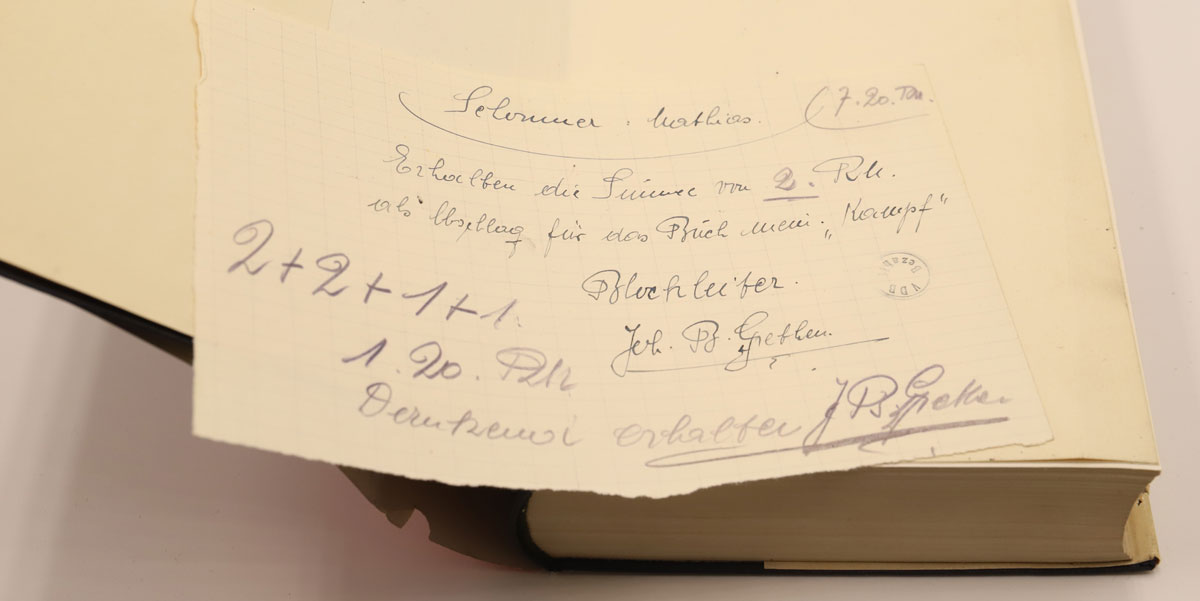 Schommer, Mathias. (7.20. RM.
Erhalten die Summe von 2. RM.
als Abschlag für das Buch mein „Kampf"
Blockleiter.
Joh. B. Grethen
2+2+1+1.
1.20. RM
Dankend erhalten J B. Grethen
VDB